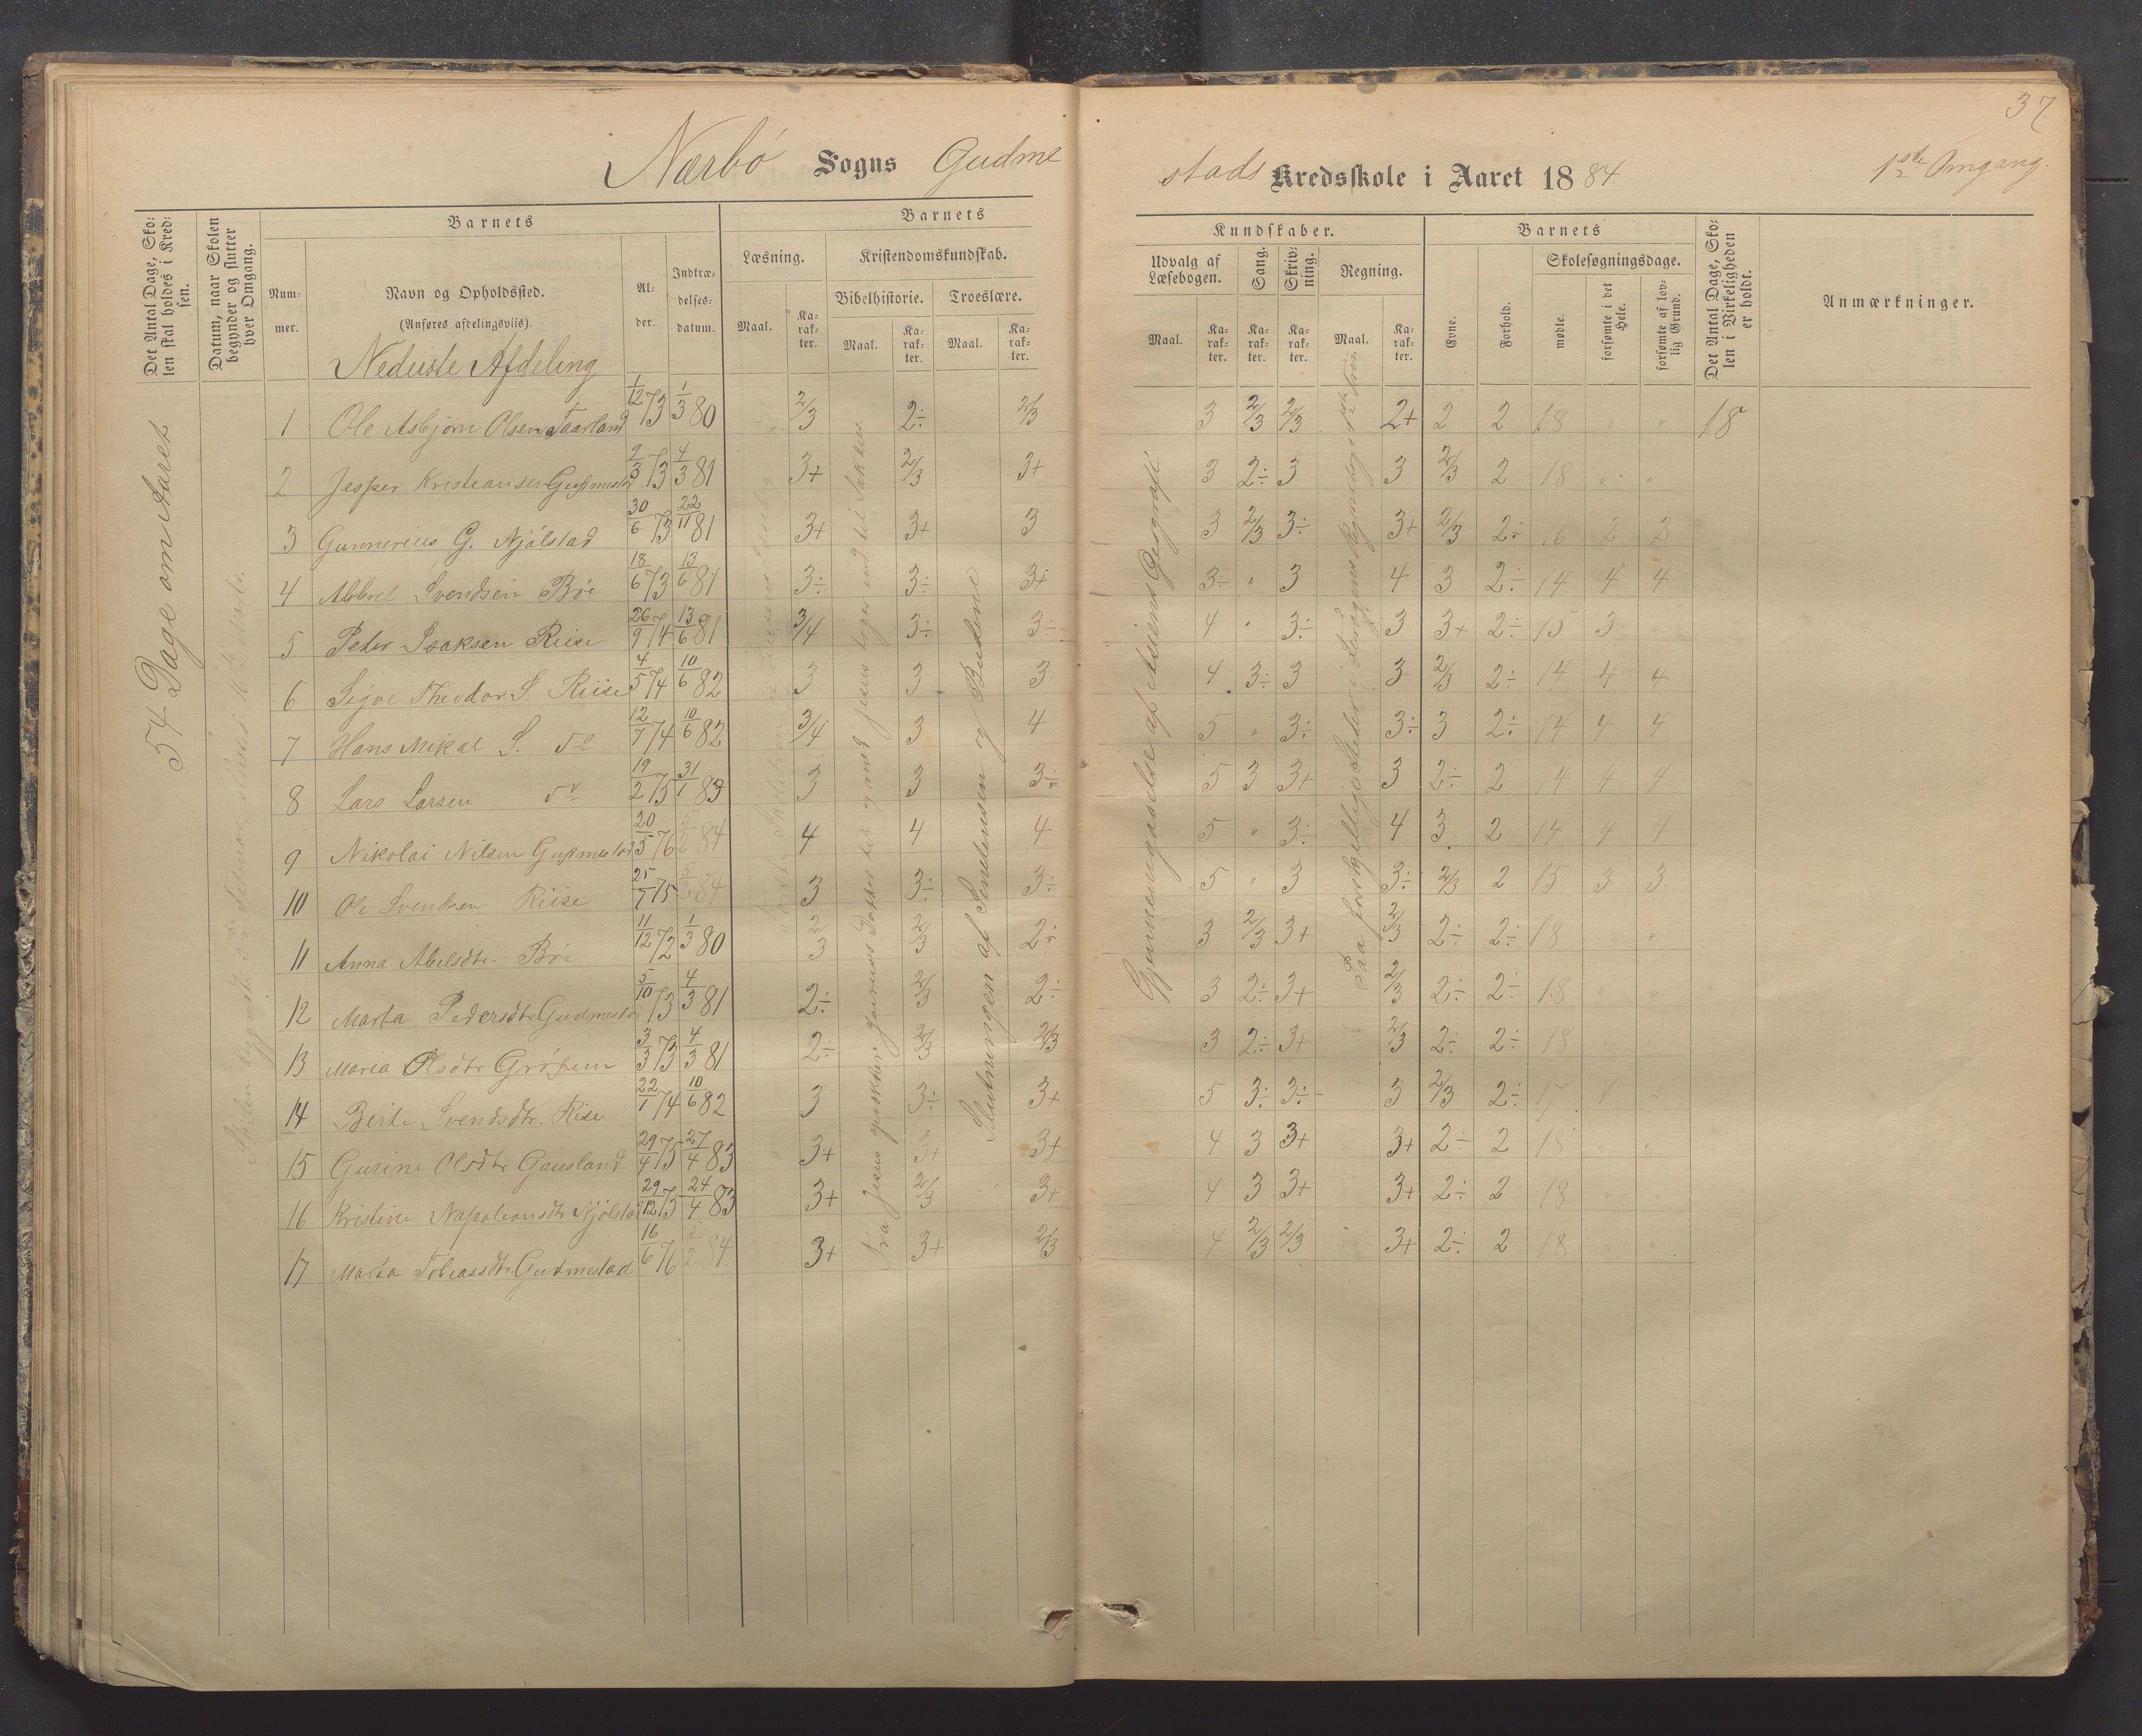 37
Nærbø Sogns Gudme
stads Kredsskole i Aaret 1884.
1ste Omgang.
Det Antal Dage, Sko-
len skal holdes i Kred-
sen.
Datum, naar Skolen
begynder og slutter
hver Omgang.
Barnets
Num-
mer.
Navn og Opholdssted.
(Anføres afdelingsviis).
Al-
der.
Indtræ-
delses-
datum.
Barnets
Læsning.
Kristendomskundskab.
Bibelhistorie.
Troeslære.
Maal.
Ka-
rak-
ter.
Maal.
Ka-
rak-
ter.
Maal.
Ka-
rak-
ter.
Kundskaber.
Udvalg af
Læsebogen.
Sang.
Skriv-
ning.
Regning.
Maal.
Ka-
rak-
ter.
Ka-
rak-
ter.
Ka-
rak-
ter.
Maal.
Ka-
rak-
ter.
Barnets
Evne.
Forhold.
Skolesøgningsdage.
mødte.
forsømte i det
Hele.
forsømte af lov-
lig Grund.
Det Antal Dage, Sko-
len i Virkeligheden
er holdt.
Anmærkninger.
Nederste Afdeling
54 Dage om Aaret
Slutningen af Sendelsen og Budene
Gjennemgaaelse af Asiens Geografi
1 Ole Asbjørn Olsen Taarland 1/12 73 1/3 80 2/3 2÷ 2/3 3 2/3 2/3 2+ 2 2 18 " " 18
2 Jesper Kristiansen Gudmestad 2/3 73 4/3 81 3+ 2/3 3+ 3 2÷ 3 3 2/3 2 18 " "
3 Gunnerius G. Njålstad 30/6 73 22/11 81 3+ 3+ 3 3 2/3 3÷ 3+ 2/3 2÷ 16 2 2
4 Svendsen Bøe 18/6 73 13/6 81 3÷ 3÷ 3+ 3÷ " 3 4 3 2÷ 14 4 4
5 Peder Isaksen Riise 26/9 74 13/6 81 3/4 3÷ 3÷ 4 " 3÷ 3 3+ 2÷ 15 3
6 Sigve Theodor S. Riise 4/5 74 10/6 82 3 3 3 4 3÷ 3 3 2/3 2÷ 14 4 4
7 Hans Mikal S. do 12/7 74 10/6 82 3/4 3 4 5 " 3÷ 3÷ 3 2÷ 14 4 4
8 Lars Larsen do 19/2 75 31/1 83 3 3 3÷ 5 3 3+ 3 2÷ 2 14 4 4
9 Nikolai Nilsen Gudmestad 20/5 76 5/2 84 4 4 4 5 " 3÷ 4 3 2 14 4 4
10 Ole Svendsen Riise 25/7 75 5/2 84 3 3÷ 3÷ 5 " 3 3÷ 2/3 2 15 3 3
11 Anna Abelsdtr. Bøe 11/12 72 1/3 80 2/3 2/3 2÷ 3 2/3 3+ 2/3 2÷ 2÷ 18 "
12 Marta Pedersdtr Gudmestad 5/10 73 4/3 81 2÷ 2/3 2÷ 3 2÷ 3+ 2/3 2÷ 2÷ 18 " "
13 Maria Olsdtr 3/3 73 4/3 81 2÷ 2/3 2/3 3 2÷ 3+ 2/3 2÷ 2÷ 18
14 Berte Svendsdtr. Rise 22/1 74 10/6 82 3 3÷ 3+ 5 3÷ 3÷ 3 2/3 2÷ 17 1
15 Gurine Olsdtr Gausland 29/4 75 27/4 83 3+ 3+ 3+ 4 3 3+ 3+ 2÷ 2 18 " "
16 Kristine Napoleonsdtr Njølstad 29/12 73 24/4 83 3+ 2/3 3+ 4 3 3+ 3+ 2÷ 2 18 " "
17 Marta Tobiassdtr Gudmestad 16/6 76 5/2 84. 3+ 3+ 2/3 4 2/3 2/3 3+ 2÷ 2 18 " "